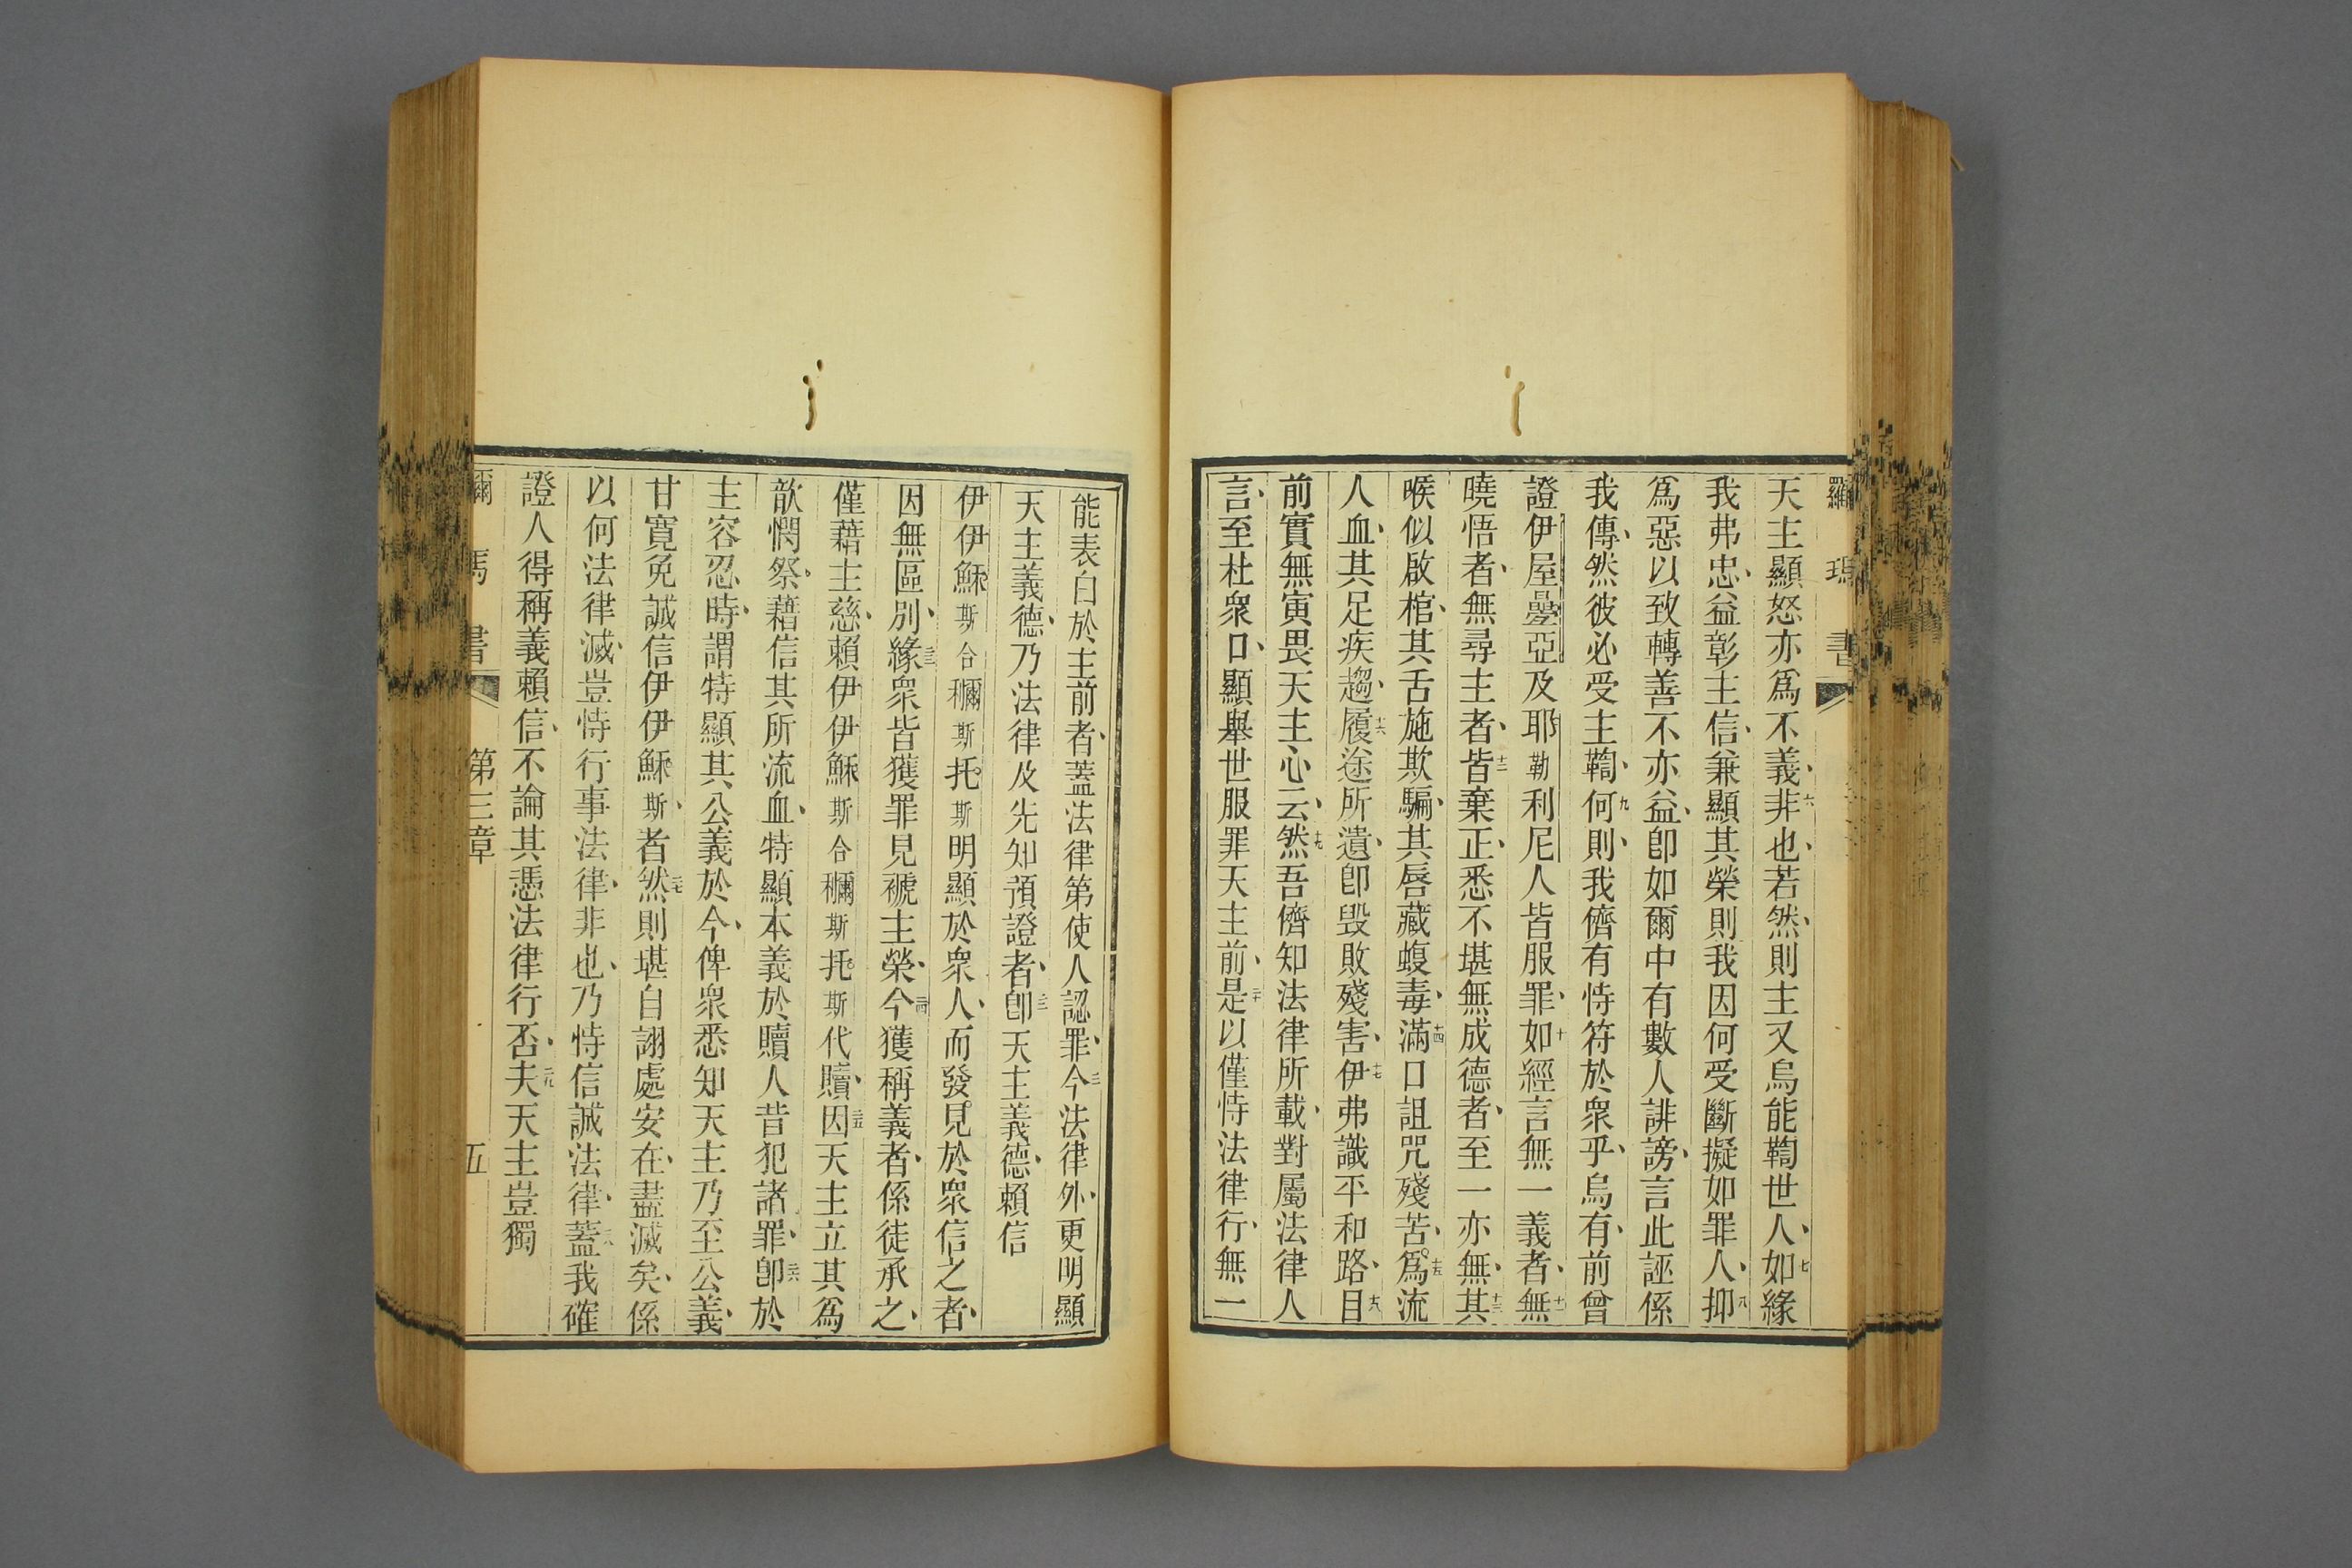 羅瑪書
天主顯怒亦爲不義、六非也、若然、則主又烏能鞫世人、七如緣
我弗忠、益彰主信、兼顯其榮則我因何受斷擬如罪人、八抑
爲惡以致轉善不亦益、卽如爾中有數人誹謗、言此誣係
我傳、然彼必受主鞫、九何則、我儕有恃符於衆乎、烏有、前曾
證伊屋疊亞及耶勒利尼人皆服罪、十如經言無一義者、十一無
曉悟者、無尋主者、十二皆棄正、悉不堪無成德者、至一亦無、十三其
喉似啟棺、其舌施欺騙、其唇藏蝮毒、十四滿口詛咒殘苦、十五爲流
人血、其足疾趨、十六履途所遺、卽毀敗殘害、十七伊弗識平和路、十八目
前實無寅畏天主心云、十九然吾儕知法律所載、對屬法律人
言、至杜衆口、顯舉世服罪天主前、二十是以僅恃法律行、無一
能表白於主前者、蓋法律第使人認罪、二一今法律外、更明顯
天主義德、乃法律及先知預證者、二二卽天主義德、賴信
伊伊穌斯合穪斯托斯明顯於衆人、而發見於衆信之者、
因無區別、二三緣衆皆獲罪見褫主榮、二四今獲稱義者、係徒承之、
僅藉主慈、賴伊伊穌斯合穪斯托斯代贖、二五因天主立其爲
歆憫祭、藉信其所流血、特顯本義於贖人昔犯諸罪、二六卽於
主容忍時、謂特顯其公義於今、俾衆悉知天主乃至公義、
甘寛免誠信伊伊穌斯、者二七然則堪自詡處安在、盡滅矣、係
以何法律滅、豈恃行事法律、非也、乃恃信誠法律、二八蓋我確
證人得稱義賴信、不論其憑法律行否、二九夫天主豈獨
第三章
五